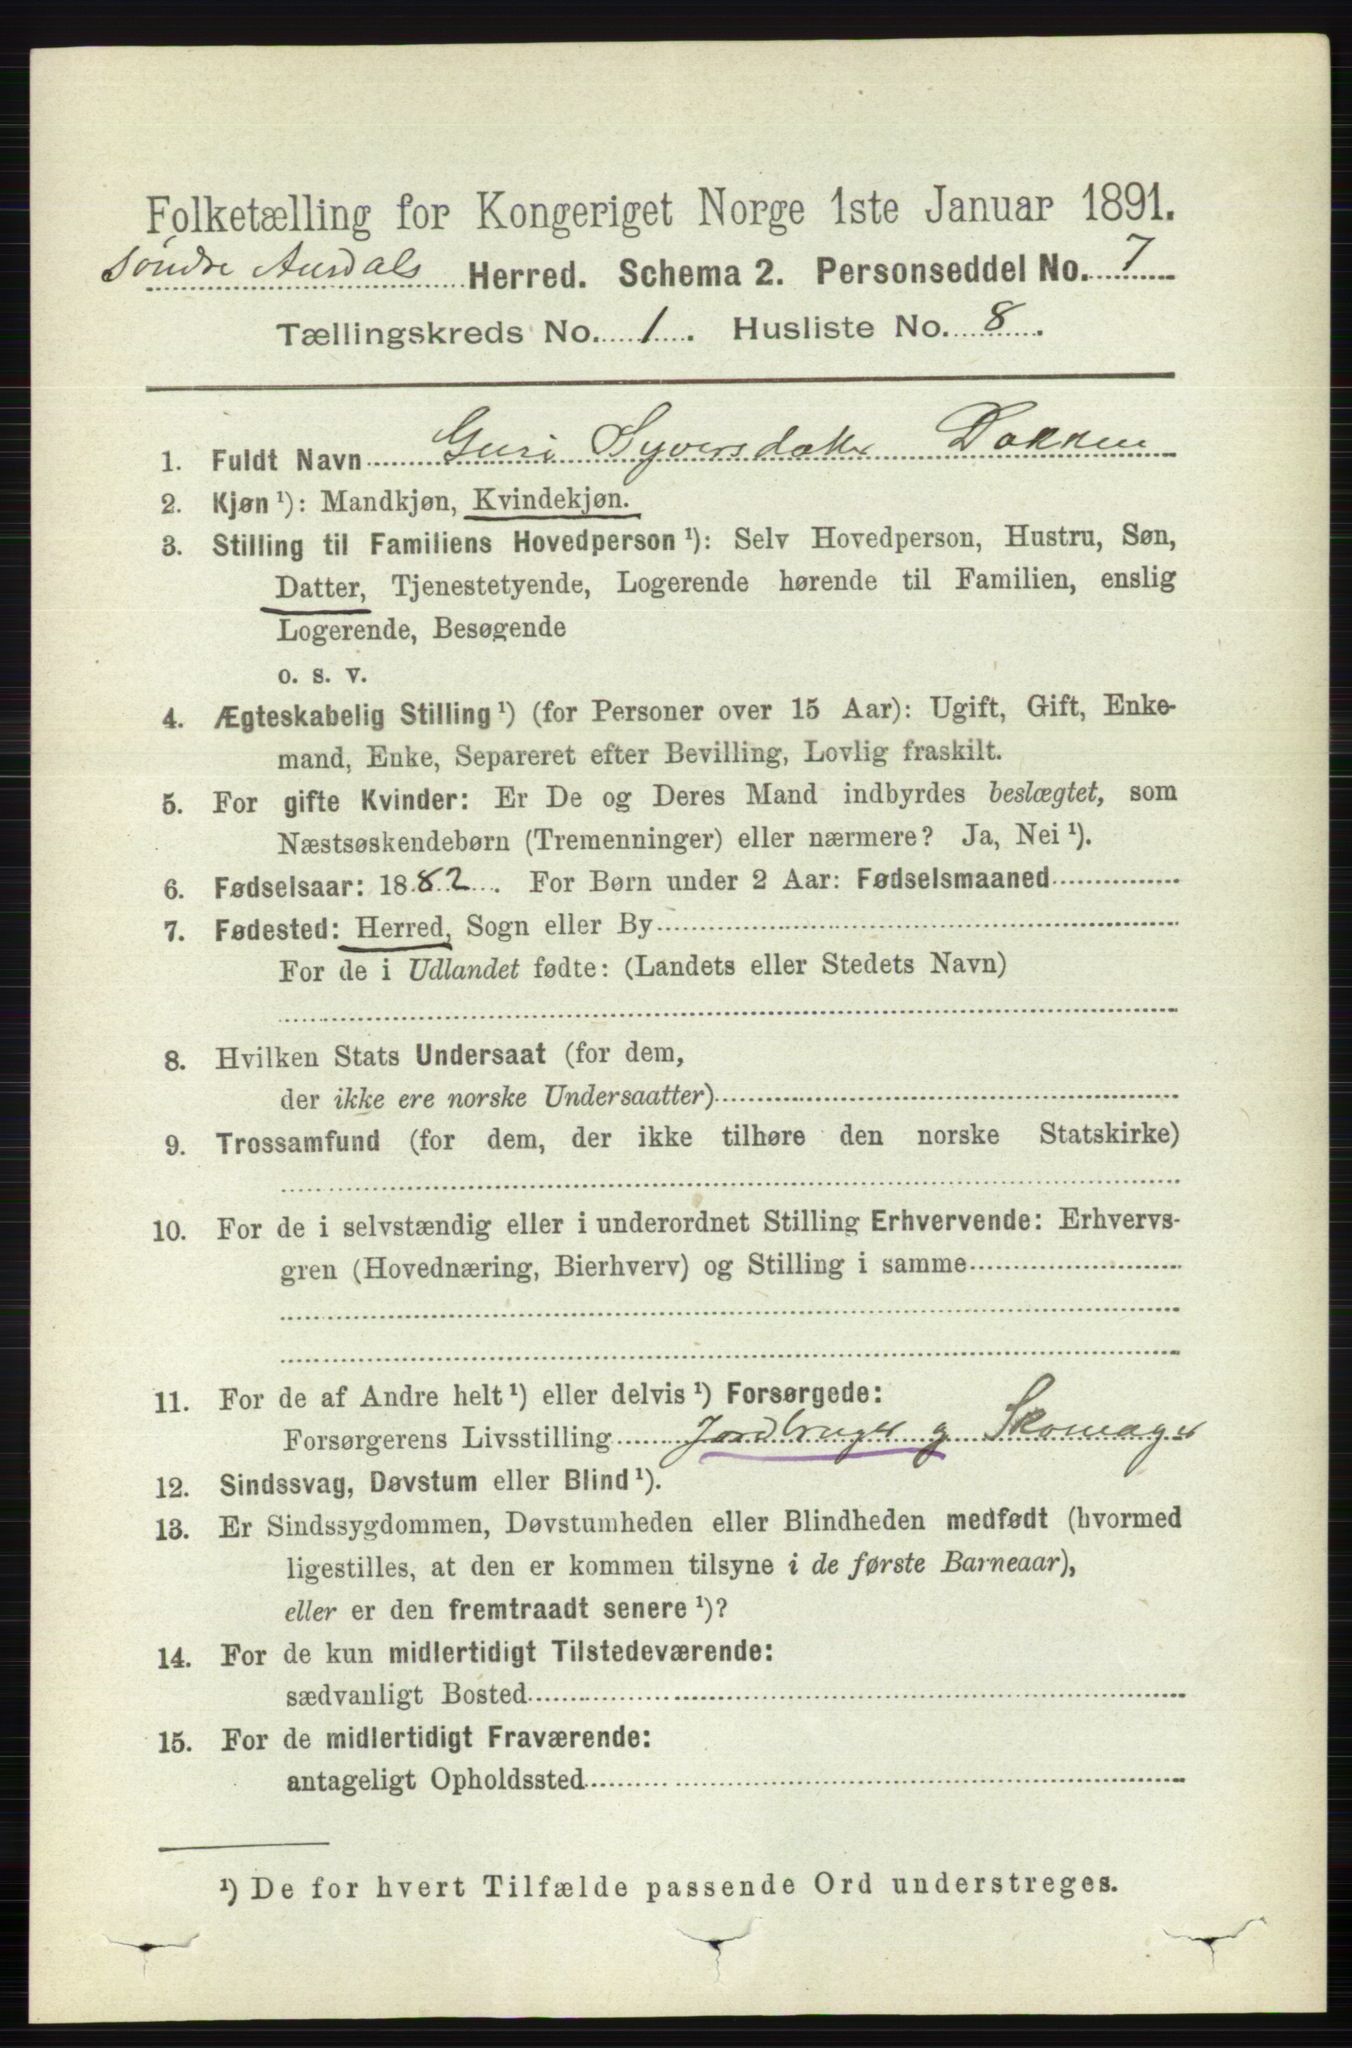 Folketælling for Kongeriget Norge 1ste Januar 1891.
Søndre Aurdals Herred. Schema 2. Personseddel No. 7
Tællingskreds No. 1. Husliste No. 8.
1. Fuldt Navn Guri Syversdatter Dokken
2. Kjøn ¹): Mandkjøn, Kvindekjøn.
3. Stilling til Familiens Hovedperson ¹): Selv Hovedperson, Hustru, Søn,
Datter, Tjenestetyende, Logerende hørende til Familien, enslig
Logerende, Besøgende
o. s. v.
4. Ægteskabelig Stilling ¹) (for Personer over 15 Aar): Ugift, Gift, Enke-
mand, Enke, Separeret efter Bevilling, Lovlig fraskilt.
5. For gifte Kvinder: Er De og Deres Mand indbyrdes beslægtet, som
Næstsøskendebørn (Tremenninger) eller nærmere? Ja, Nei ¹).
6. Fødselsaar: 1882. For Børn under 2 Aar: Fødselsmaaned
7. Fødested: Herred, Sogn eller By
For de i Udlandet fødte: (Landets eller Stedets Navn)
8. Hvilken Stats Undersaat (for dem,
der ikke ere norske Undersaatter)
9. Trossamfund (for dem, der ikke tilhøre den norske Statskirke)
10. For de i selvstændig eller i underordnet Stilling Erhvervende: Erhvervs-
gren (Hovednæring, Bierhverv) og Stilling i samme
11. For de af Andre helt ¹) eller delvis ¹) Forsørgede:
Forsørgerens Livsstilling Jordbruger g Skomager
12. Sindssvag, Døvstum eller Blind ¹).
13. Er Sindssygdommen, Døvstumheden eller Blindheden medfødt (hvormed
ligestilles, at den er kommen tilsyne i de første Barneaar),
eller er den fremtraadt senere ¹)?
14. For de kun midlertidigt Tilstedeværende:
sædvanligt Bosted
15. For de midlertidigt Fraværende:
antageligt Opholdssted
¹) De for hvert Tilfælde passende Ord understreges.